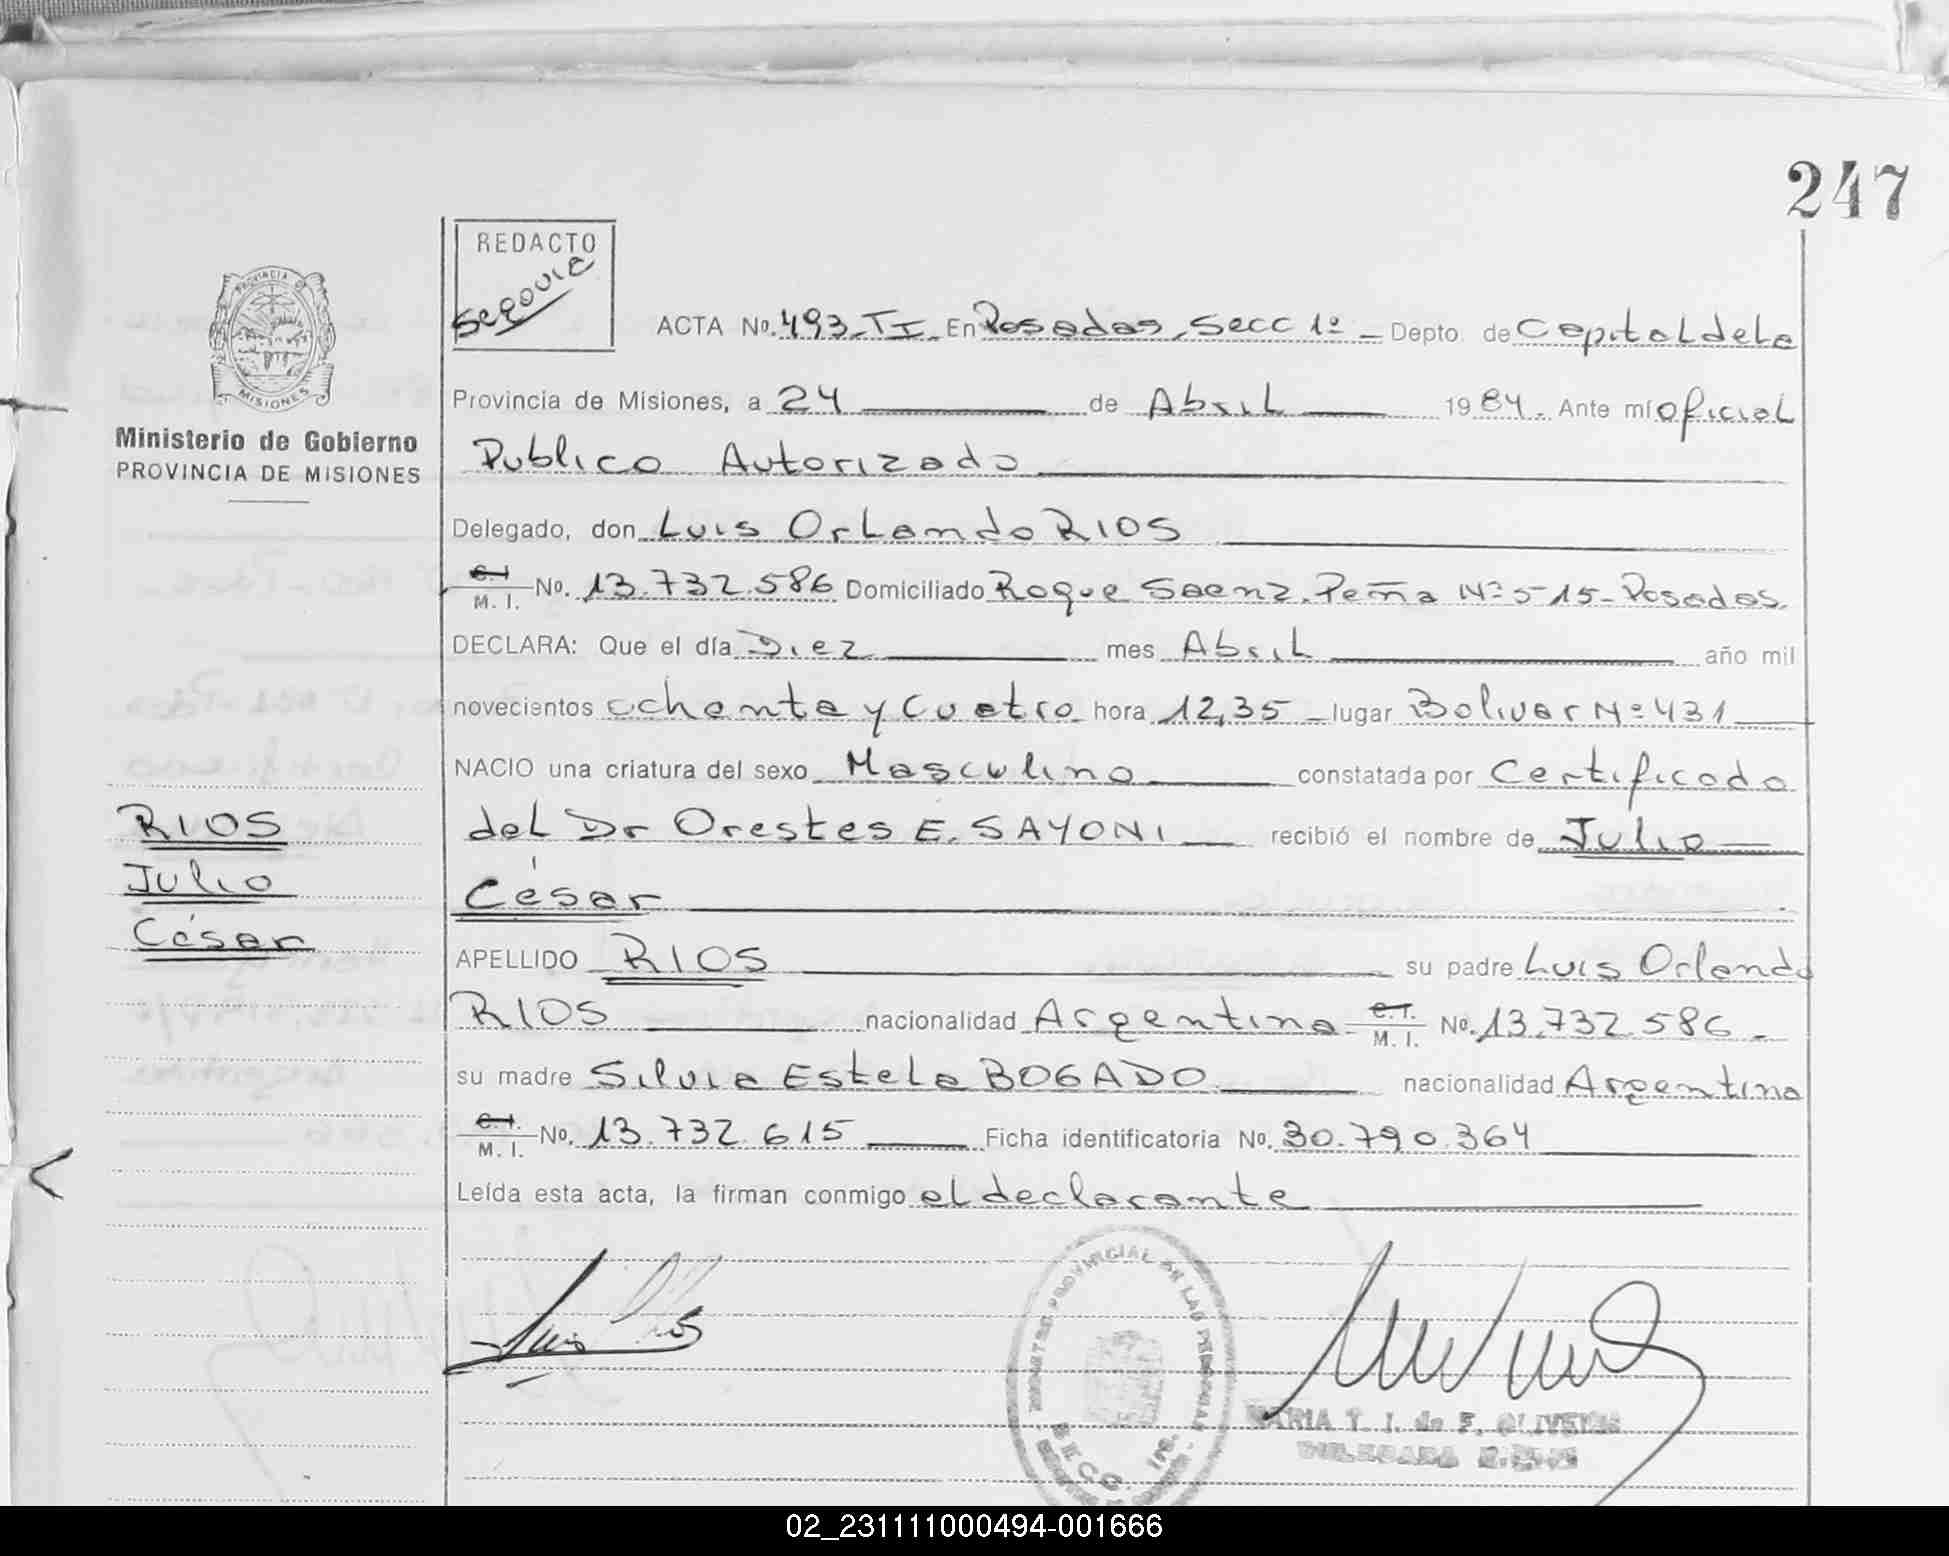 247
REDACTO
Segovia
ACTA No. 493-TI- En Posadas, Secc 1º - Depto. de Capital de la
Provincia de Misiones, a 24 de Abril 1984. Ante mí oficial
Publico Autorizado
Delegado, don Luis Orlando RIOS
C.I. M. I. No. 13.732.586 Domiciliado Roque Saenz Peña Nº 515- Posadas.
DECLARA: Que el día Diez mes Abril año mil
novecientos ochenta y Cuatro hora 12,35 - lugar Bolivar Nº 431
NACIO una criatura del sexo Masculino constatada por Certificado
del Dr Orestes E. SAYONI recibió el nombre de Julio
César
APELLIDO RIOS su padre Luis Orlando
RIOS nacionalidad Argentina - C.I. M. I. No. 13.732.586 -
su madre Silvia Estela BOGADO nacionalidad Argentina
C.I. M. I. No. 13.732.615 Ficha identificatoria No. 30.790.364
Leída esta acta, la firman conmigo el declarante
PROVINCIA DE
MISIONES
Ministerio de Gobierno
PROVINCIA DE MISIONES
RIOS
Julio
César
Luis Rios
PROVINCIAL DE LAS PERSONAS
MARIA T. I. de F. OLIVEIRA
DELEGADA
02_231111000494-001666